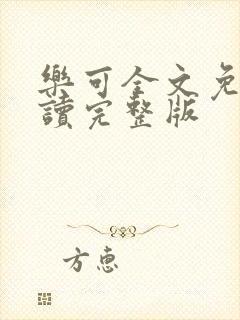 樂可全文免
讀完整版
方惠